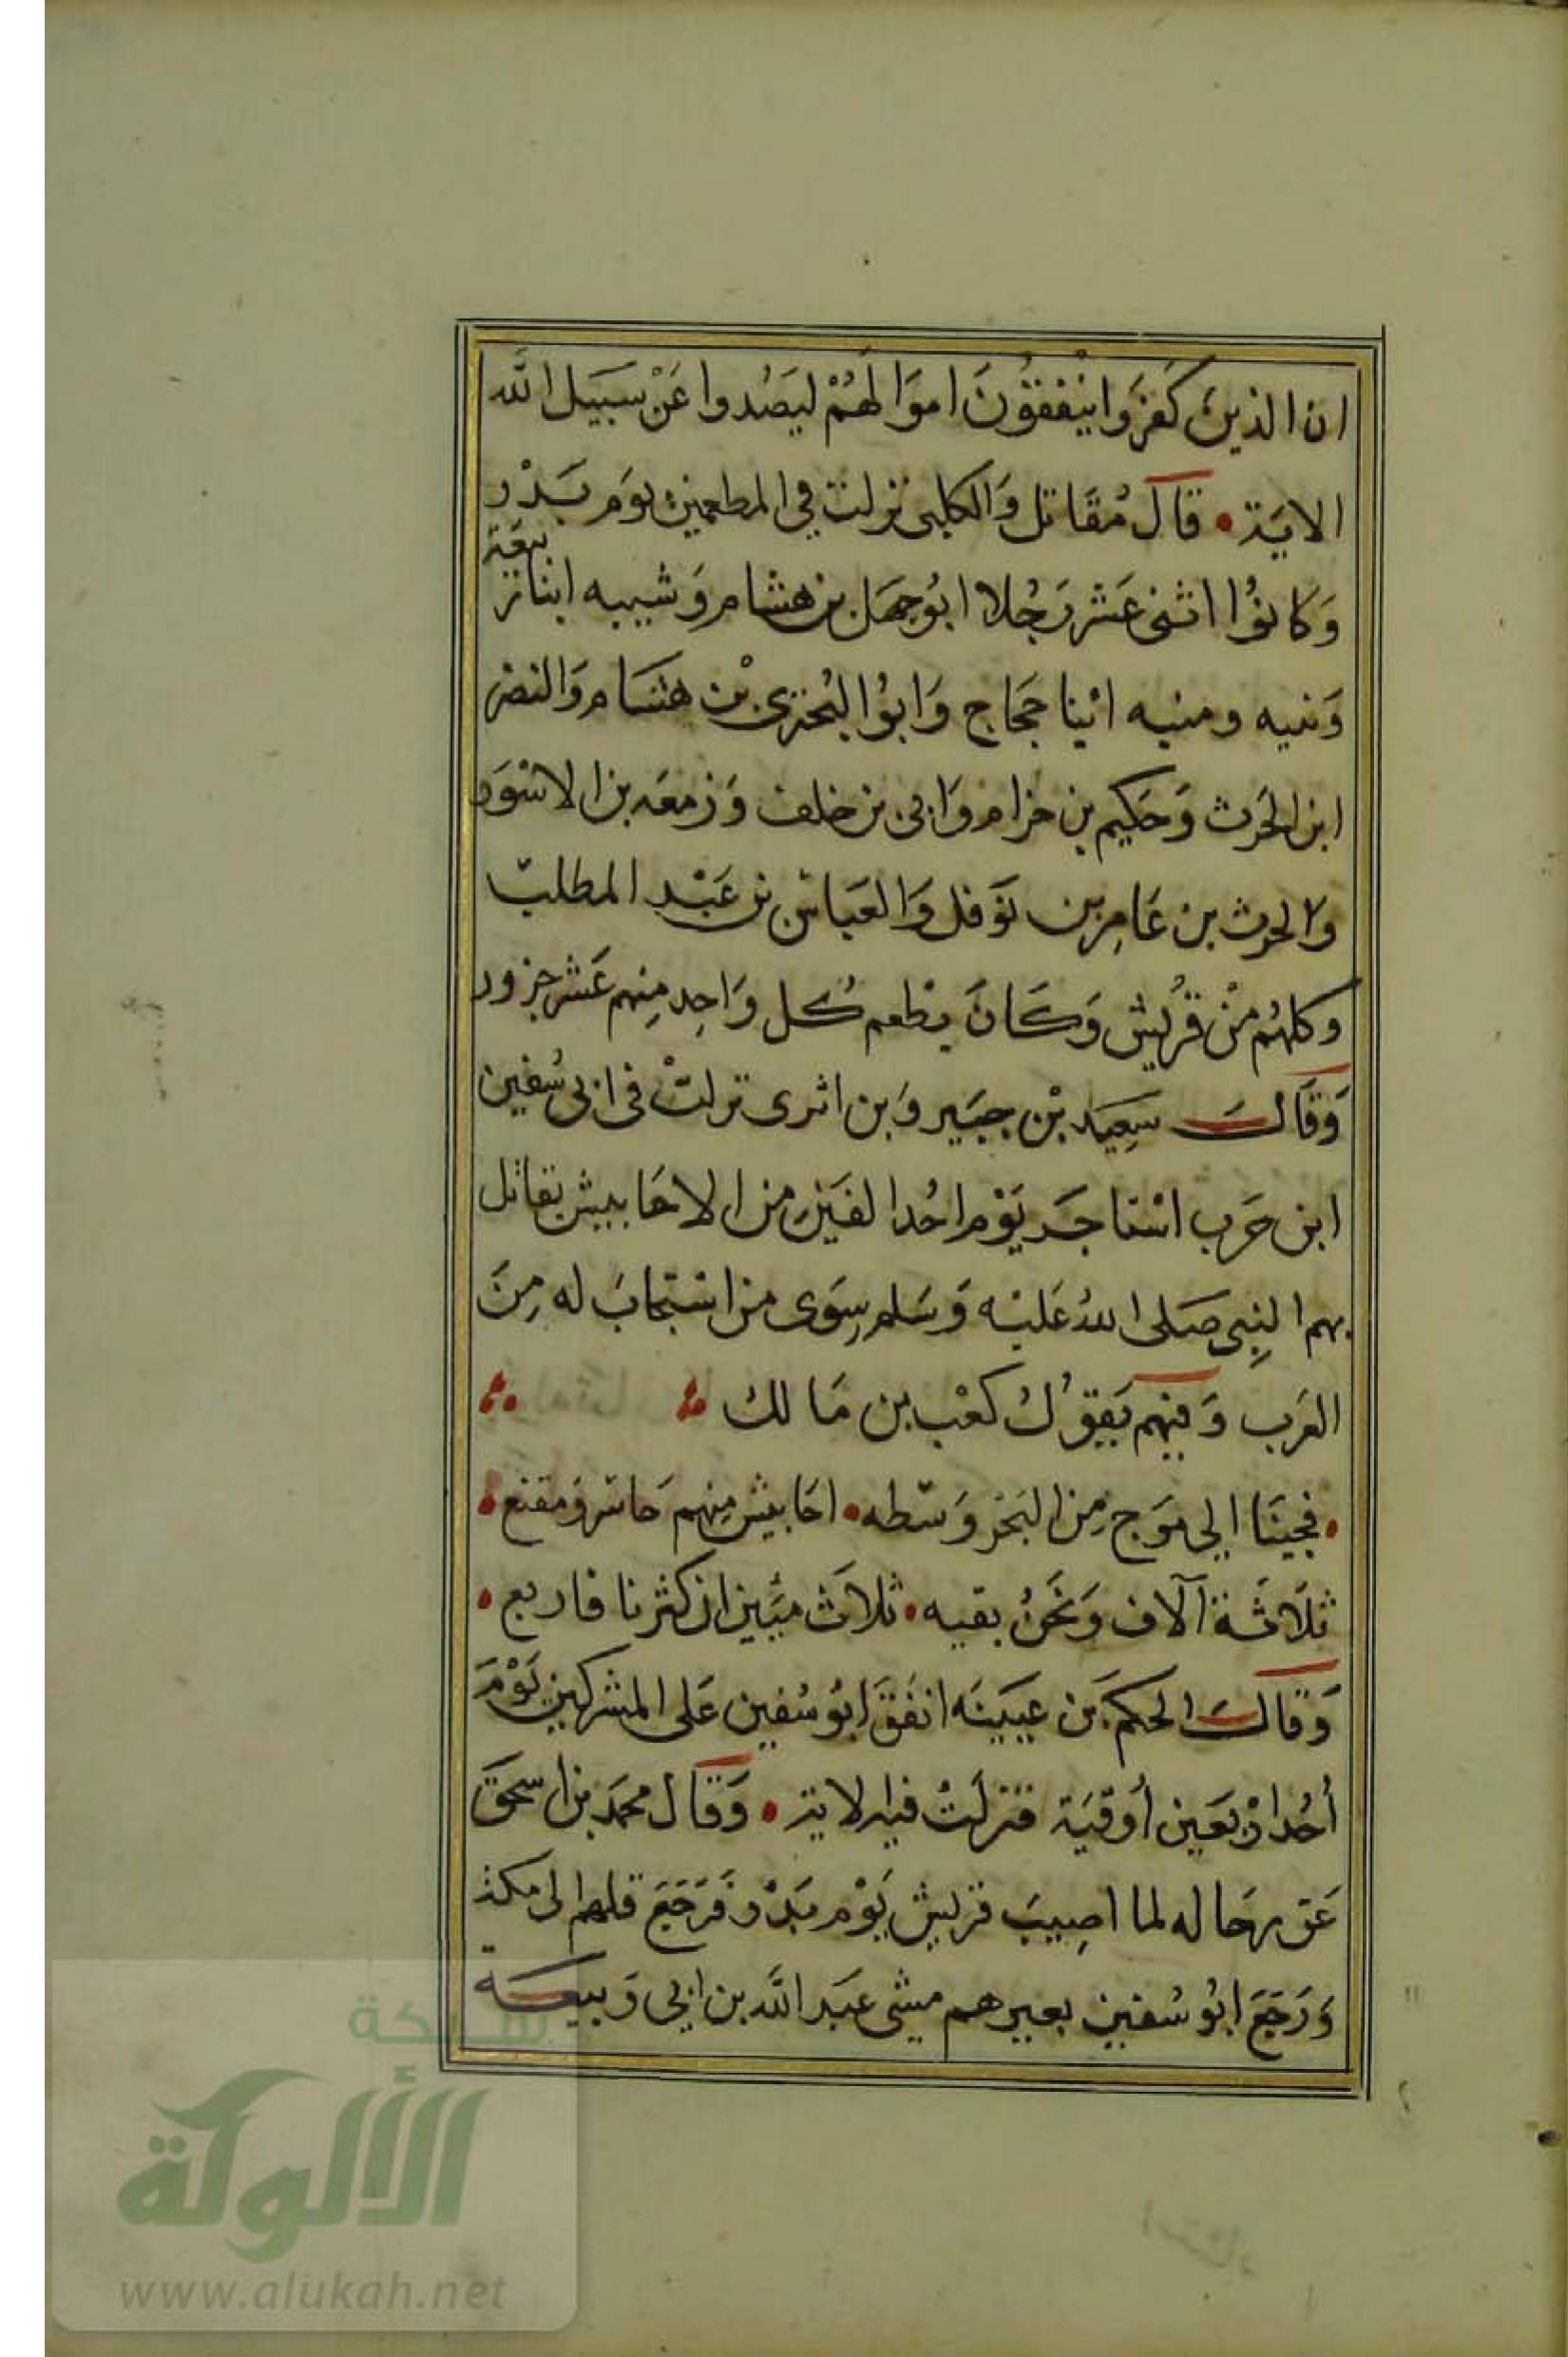 ان الذينَ كَفَرَوا ينْفِقُونَ اموَالَهُمْ ليَصُدوا عَنْ سَبيَل الله
الايَة • قَالَ مُقَاتل وَالكلبى نزلت في المطعمين يوَم بَدْر
وَكانوُا اثنى عَشر رَجُلا ابُو جهَل بن هشام وَشيبه ابنا ربيعَة
وَنبيه ومنبه ابْنا حجَاج وَابوُا البُحترى بْن هشَام وَالنضر
ابن الحَرث وَحَكيم بن حزام وَابى بن خلف وَزمعَه بن الاسْوَد
والحرث بن عَامِر بن نوَفل وَالعَباسْ بن عَبْدِ المطلبّ
وكلهُم منْ قرُيش وَكَانَ يطْعم كُل وَاحِد مِنهم عَشر جزور
وَقَالَ سَعِيَد بْن جبَير وَابن ابزى نزلتْ فى ابى سُفين
ابن حَرب اسْتاجَر يَوْم احُد الفَيَنِ من الاحَابيش يقاتل
بهم النِبى صَلى اللهُ عَليْه وَسَلم سِوَى من اسْتجَابَ له مِنَ
العَرب وَفيهم يَقوُلُ كعْب بن مَالك
• فجيَنا الي مَوج مِن البَحَر وَسّطه • احَابيش مِنهم حَاسر وَمقنع •
ثلاَثَة آلاف وَنحَنُ بقيه • ثلاَث ميَين ان كثرنا فاربع •
وَقالَ الحكمَ بَن عيَينَه انفَقَ ابوُ سُفين عَلى المشركين يَوْمَ
أُحُد ارْبعَين أوقيَة فنزلَتْ فيه الاية • وَقَال محمَد بن اسحقَ
عَن رجَاله لما اصِيبَ قريش يَوْم بَدْر فَرَجَعَ فلهم الى مكة
وَرَجَعَ ابوُ سُفين بعيرهم مشى عبَد الله بن ابي رَبيعَة
شبكة
الألوكة
www.alukah.net